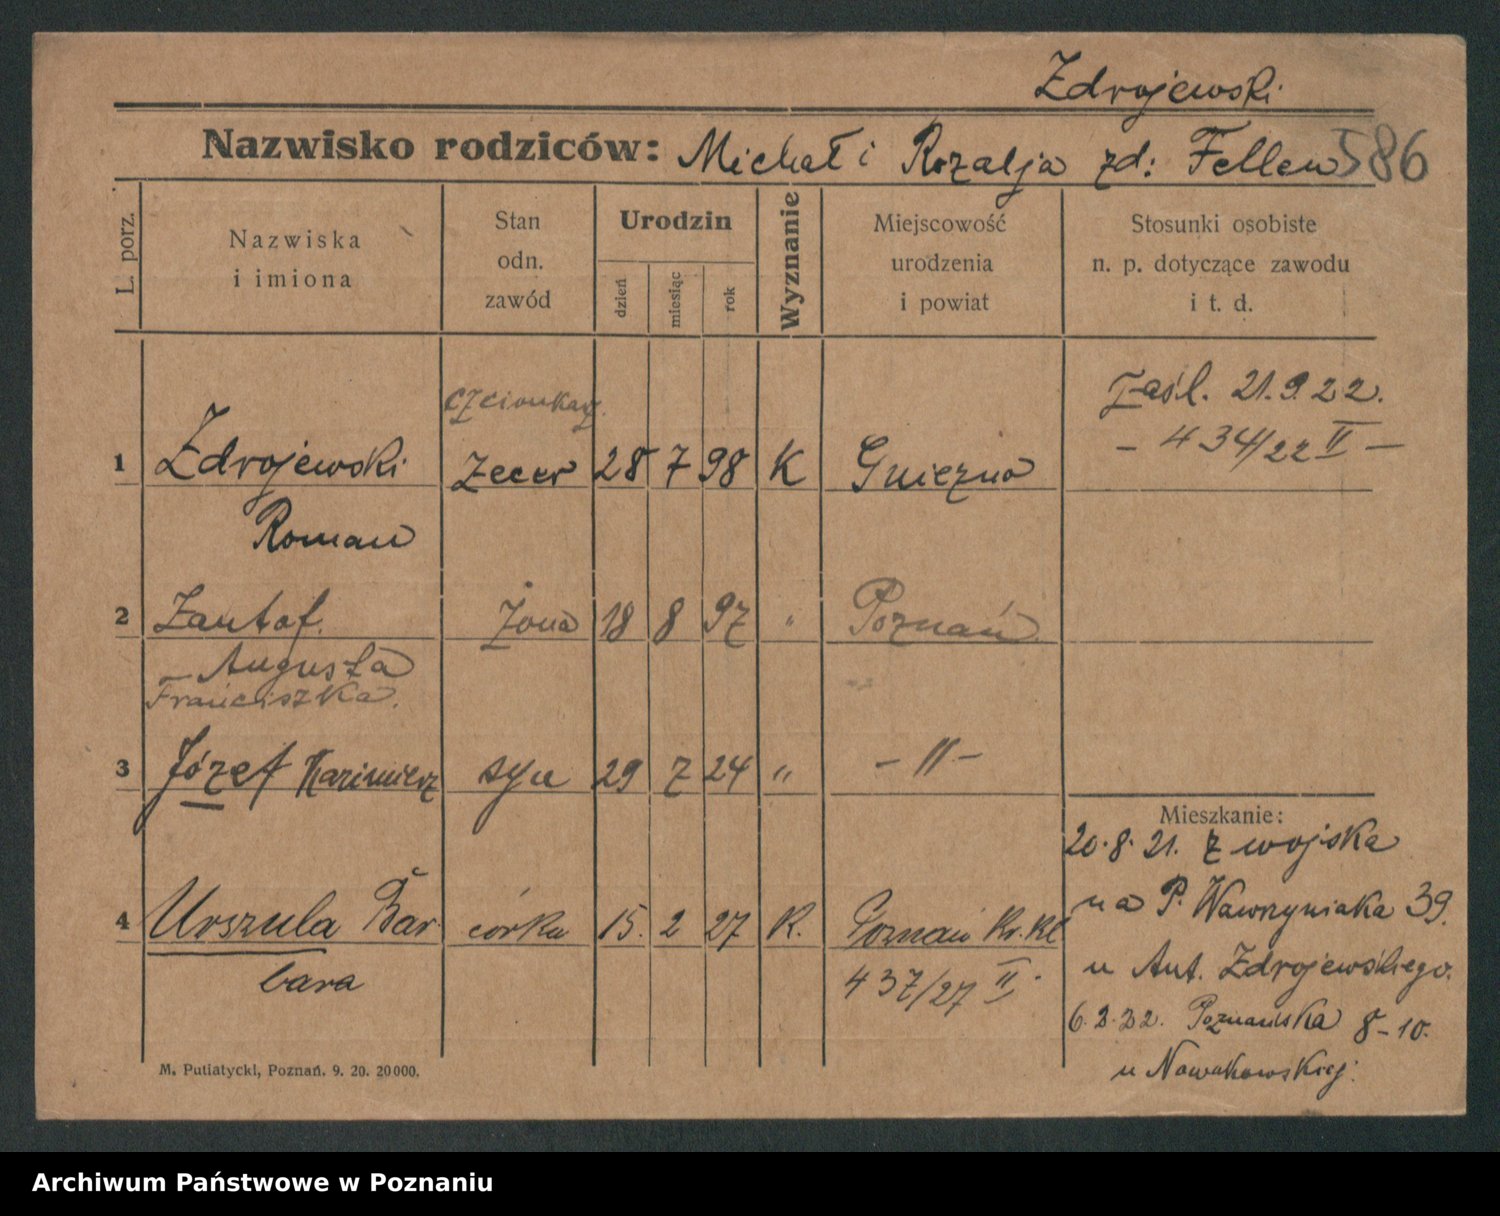 Zdrojewski
Nazwisko rodziców: Michał i Rozalja zd: Fellen 586
L. porz.
Nazwiska
i imiona
Stan
odn.
zawód
Urodzin
dzień
miesiąc
rok
Wyznanie
Miejscowość
urodzenia
i powiat
Stosunki osobiste
n. p. dotyczące zawodu
i t. d.
czcionkarz.
Zaśl. 21.9.22.
- 434/22 II -
1 Zdrojewski zecer 28 7 98 K Gniezno
Roman
2 Zantof. żona 18 8 97 " Poznań
- Augusta
Franciszka.
3 Józef Kazimierz syn 29 7 24 " - II -
Mieszkanie:
20.8.21. z wojska
na P. Wawrzyniaka 39.
4 Urszula Bar córka 15. 2 27 K. Poznań
bara
437/27 II.
u Ant. Zdrojewskiego.
6.2.22. Poznańska 8-10.
u Nowakowskiej.
M. Putiatycki, Poznań. 9. 20. 20000.
Archiwum Państwowe w Poznaniu